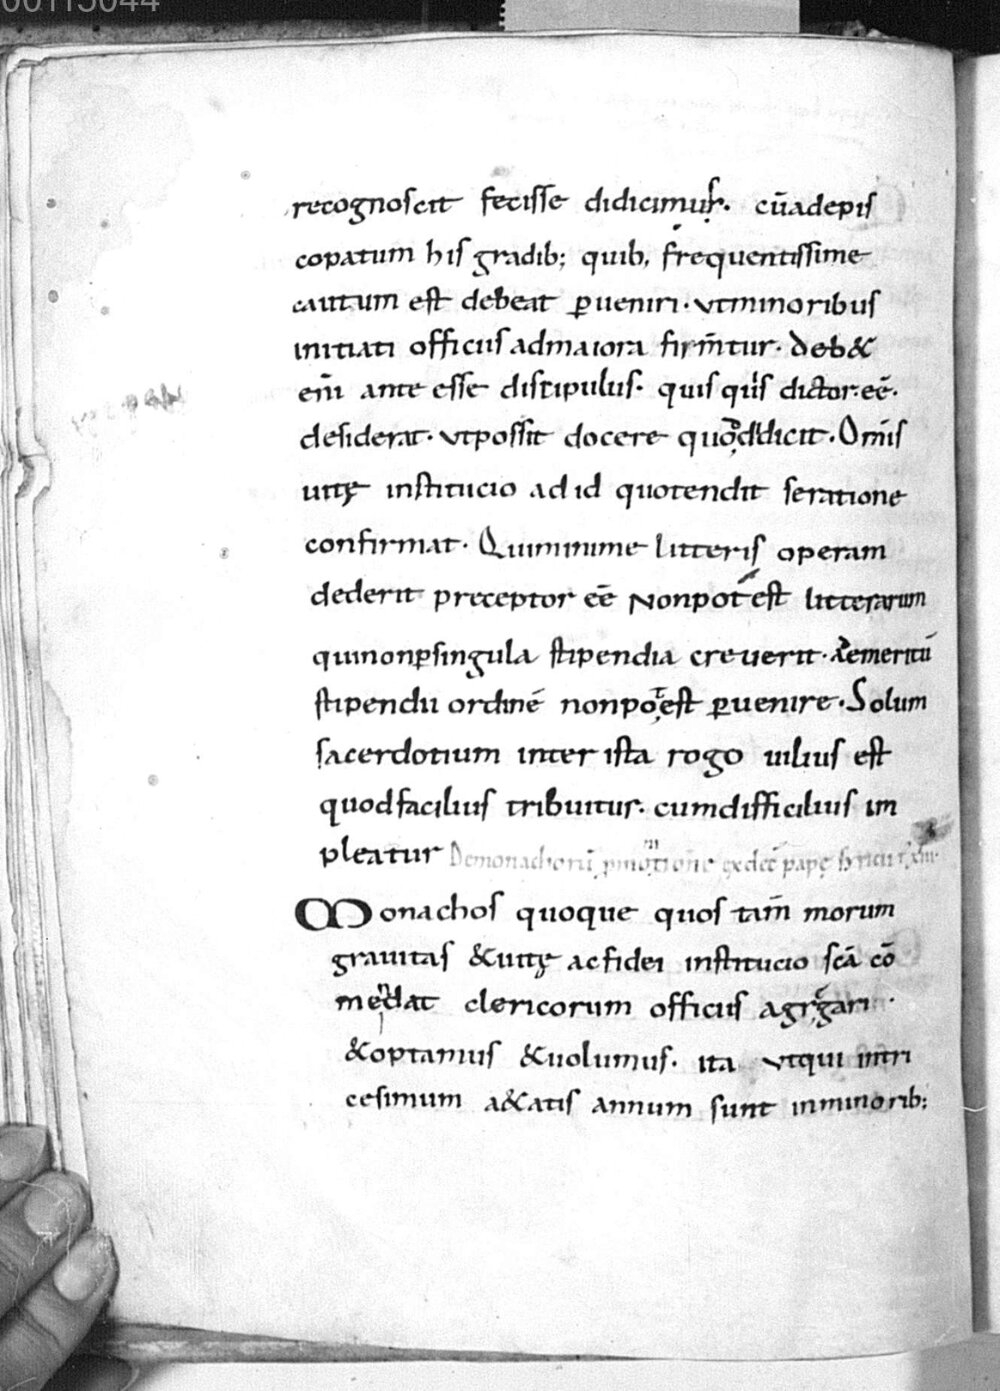 00115044
recognoscit fecisse didicimus. cū adepis
copatum his gradib; quib, frequentissime
cautum est debeat ꝑueniri. vt minoribus
initiati officiis ad maiora firm̄tur. deb&
eni̅ ante esse discipulus. quisquis doctor eē.
desiderat. vt possit docere quod dicit. Om̄is
uitę institucio ad id quo tendit se ratione
confirmat. Qui minime litteris operam
dederit preceptor eē non potest litterarum
qui non ꝑ singula stipendia creuerit. ad emeritū
stipendii ordinē non potest ꝑuenire. Solum
sacerdotium inter ista rogo uilius est
quod facilius tribuitur. cum difficilius im
pleatur De monachorū ꝓmotione
Monachos quoque quos tam̄ morum
grauitas & uitę ac fidei institucio scā cō
mendat clericorum officiis aggregari
& optamus & uolumus. ita vt qui intri
cesimum a&atis annum sunt in minorib;